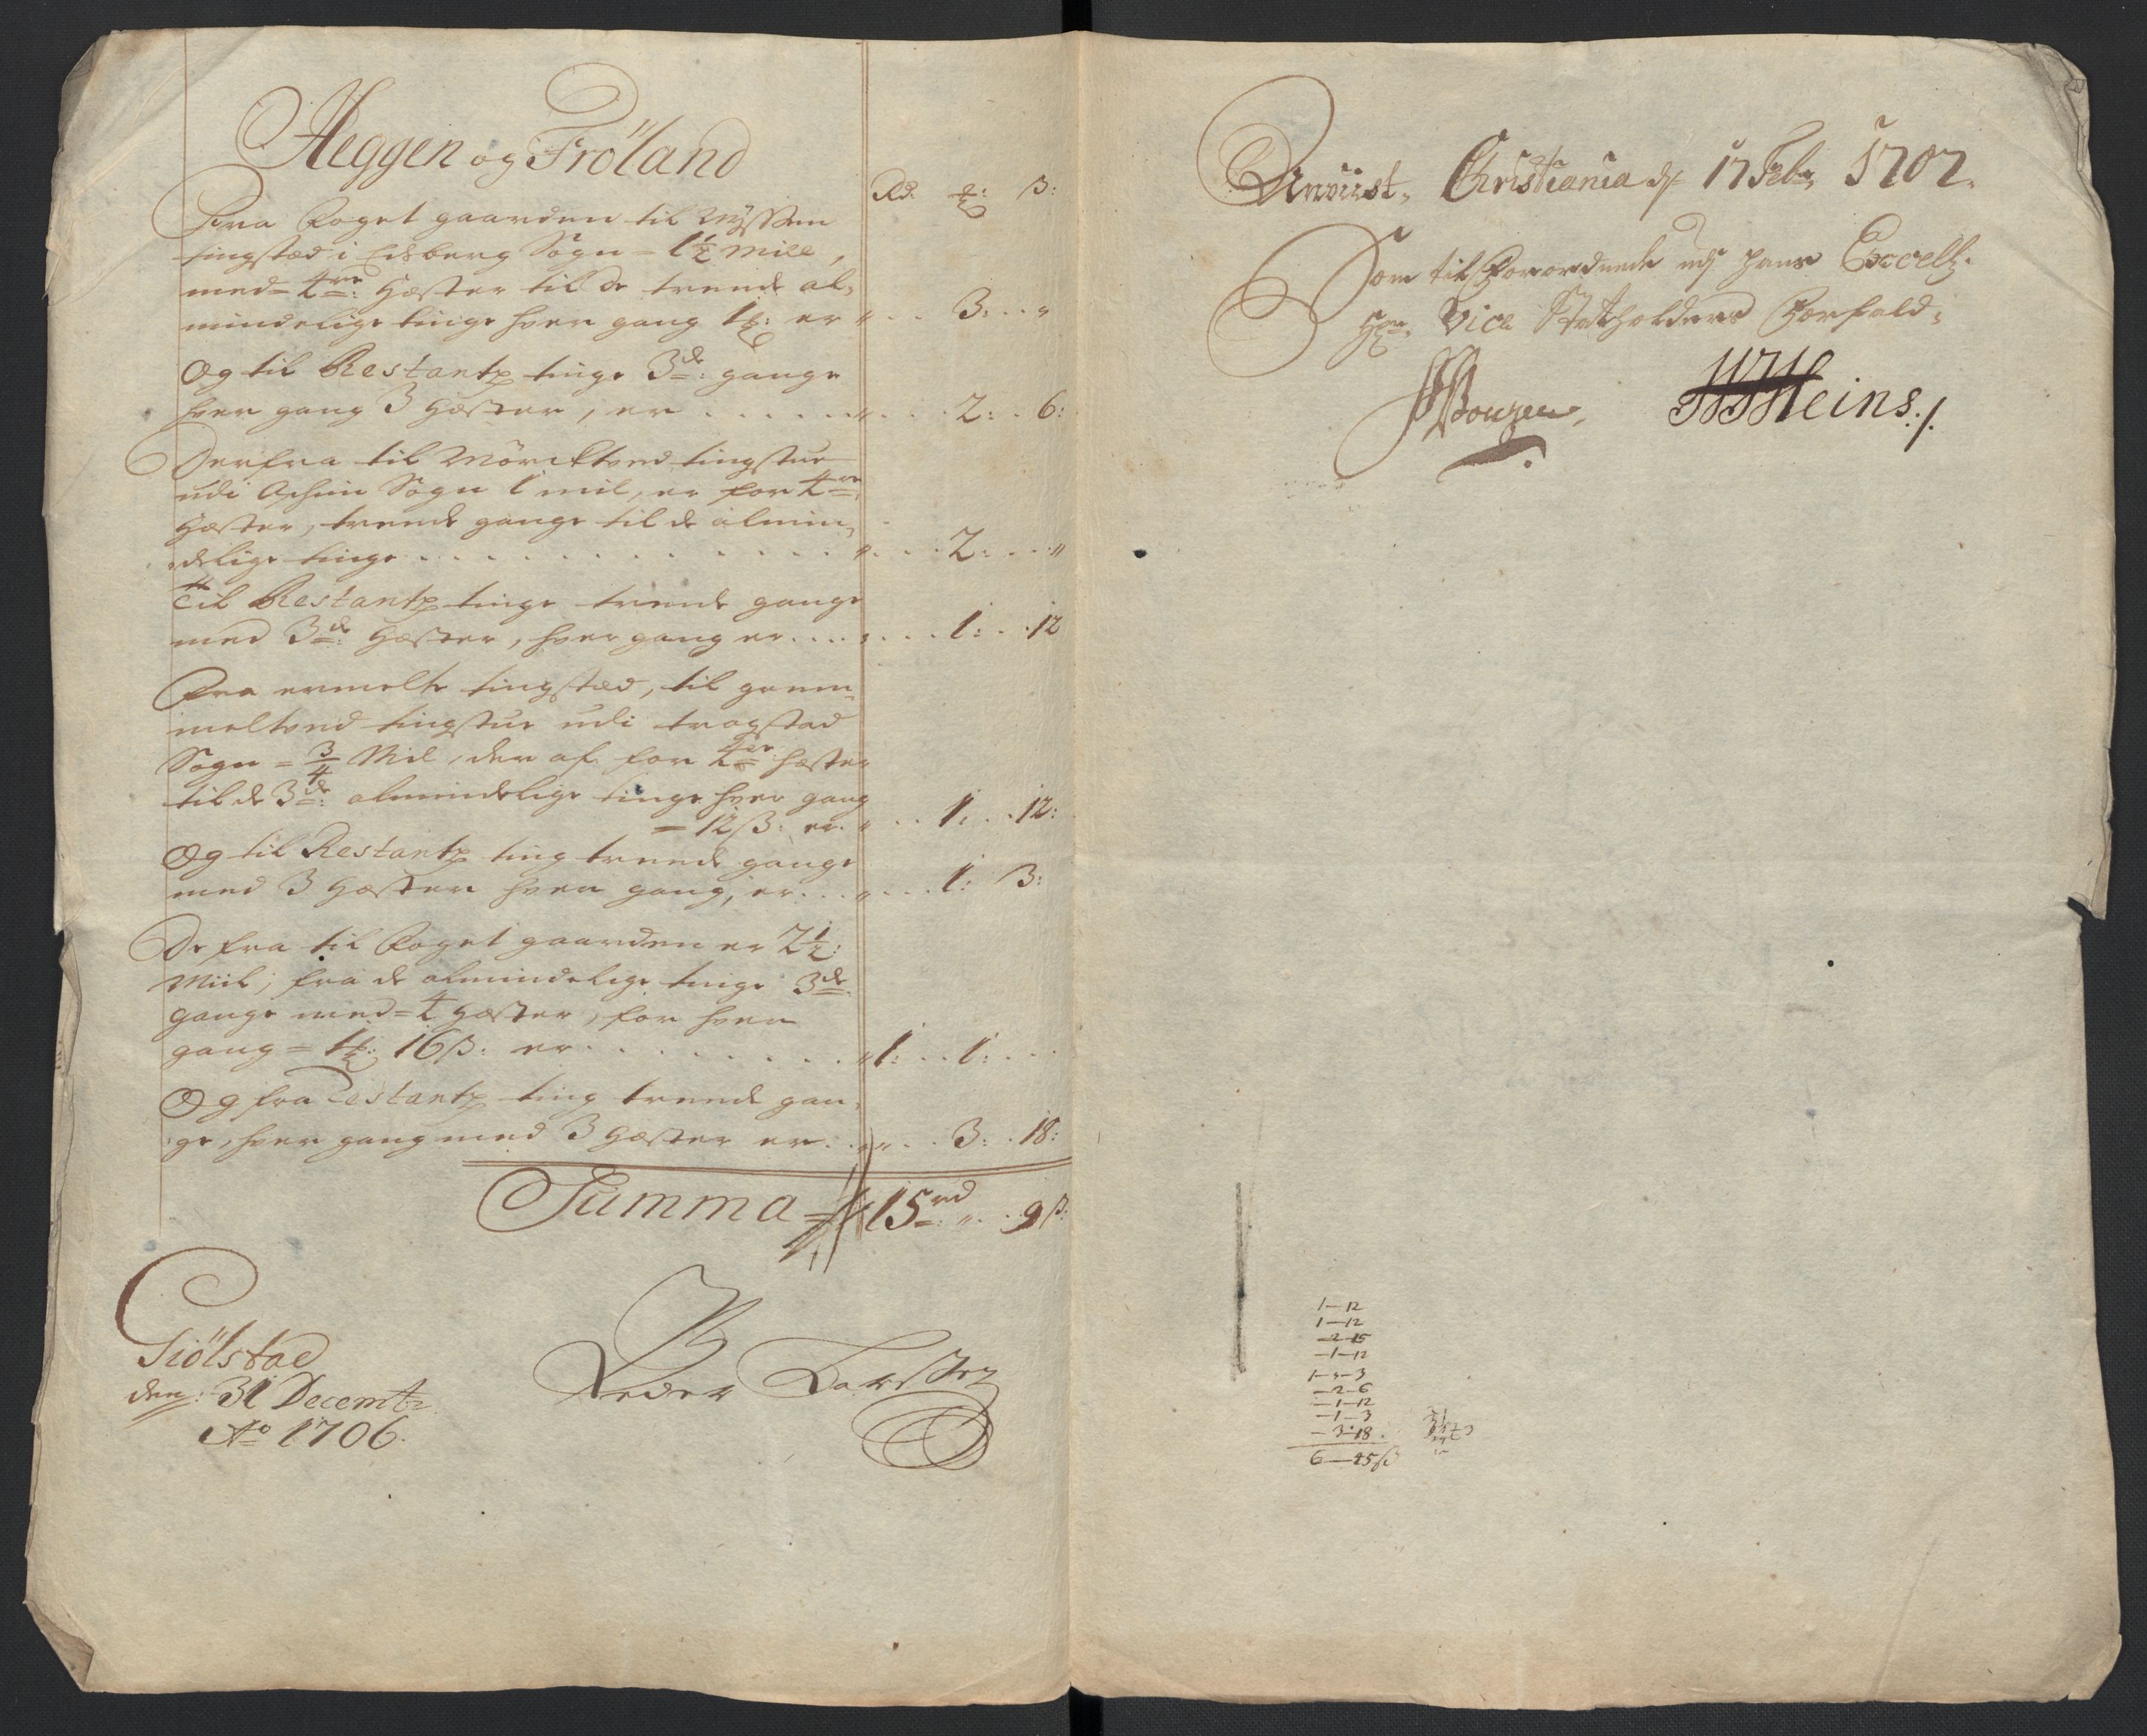 Heggen og Fröland
Rd. ß:
Fra Foget gaarden til Myssen
tingstæd i Eidsberg Sogn = 1½ Mill,
med= 4re: Hæster til de trende al,
mindelige tinge hver gang 1 er " . . 3: . . "
Og til Restantz tinge 3de: gange
hver gang 3 Hæster, er . . . . . . " . . . 2: . . 6:
Derfra til Mörcktved tingstue
udi Aschim Sogn 1 mil, er for 4re
Hæster, trende gange til de almin,
delige tinge . . . . . . . . . . . . " . . . 2: . . . "
Til Restantz tinge trende gange
med 3de: Hæster, hver gang er . . . . . . . 1: . . 12
Fra ermelte tingstæd, til gam-
meltved tingstue udi trøgstad
Sogn = 3/4 Mil, der af for 4re hæster
til de 3de: almindelige tinge hver gang
= 12 ß: er. " . . 1: . . 12:
Og til Restantz ting trende gange
med 3 Hæster hver gang, er . . . " . . . 1: 3:
De fra til Foget gaarden er 2½:
Miil; fra de almindelige tinge 3de
gange med= 4 Hæster, for hver
gang = 1 16 ß: er . . . . . . . . . "1: . . 1: . . .
Og fra Restantz ting trende gan,
ge, hver gang med 3 Hæster er . . " . . 3: . 18:
Summa = 15 rd " . . 9 ß:
Giölstad
den: 31 Decembr
Ao 1706.
Peder Larssen
Anviist, Christiania dh 17 Febr, 1707.
Som til Forordnede udj hans Excell:
Hr: Vice Statholders Forfald,
Heins ./.
1 — 12
1 — 12
— 2 — 15
— 1 — 12
1 — 3 — 3
— 2 — 6
— 1 — 12
— 1 — 3
— 3 — 18 .
6 — 45 ß